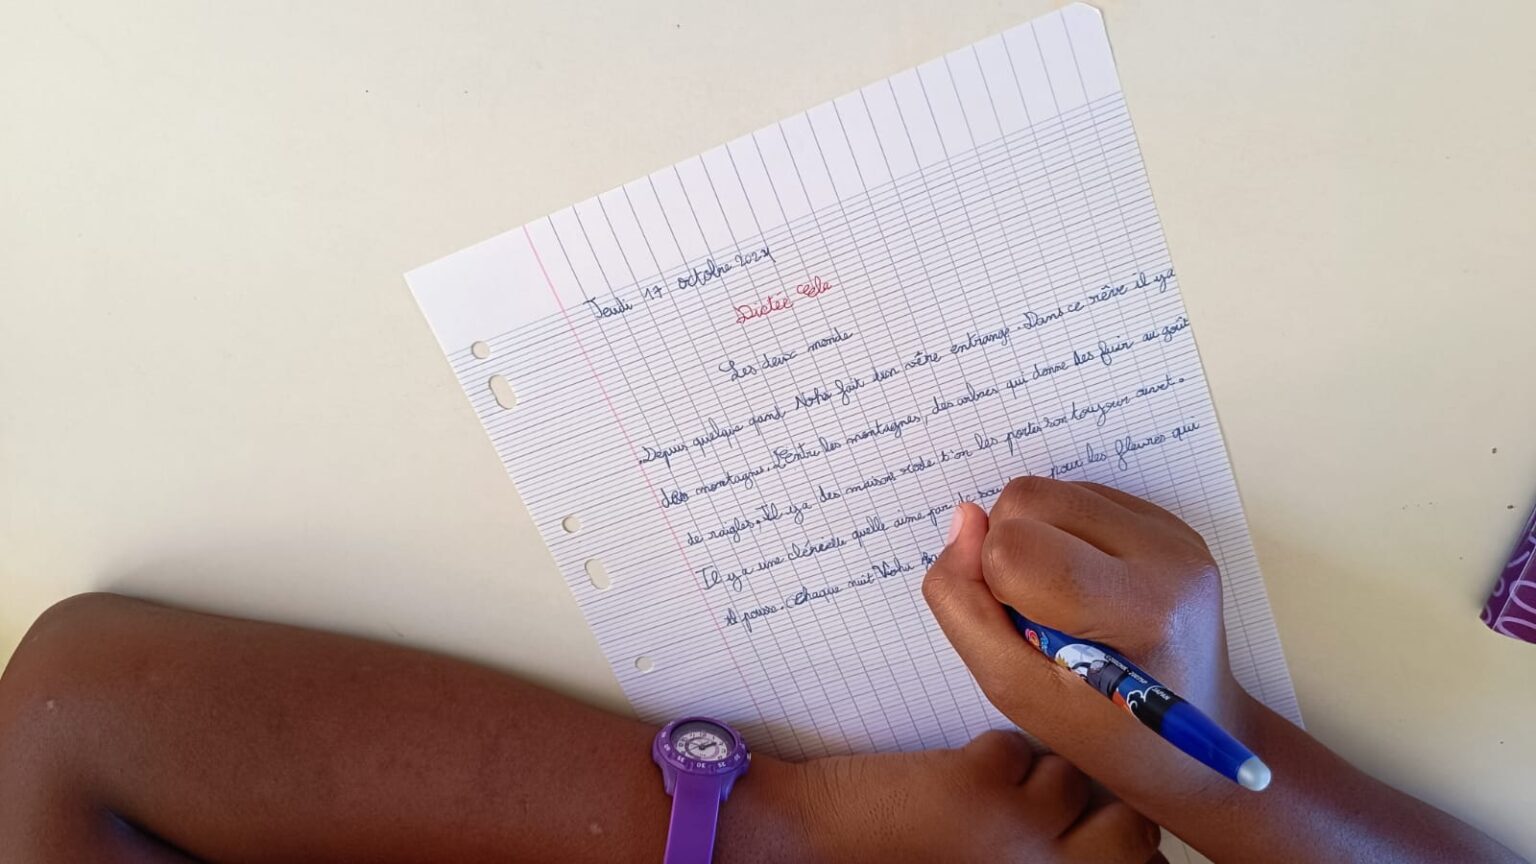 Jeudi 17 octobre 2024
Dictée
Les deux monde
Depuis quelque qand Noha fait un rêve entrange. Dans ce rêve il ya
des montagne. Entre les montagnes, des arbres qui donne des fluir au goût
de raigles. Il ya des maisons rode t'on les portes son toujour ouvet.
Il ya une clérielle quelle aime par de pour les fleures qui
pousse. Chaque nuit Noha
JAPAN